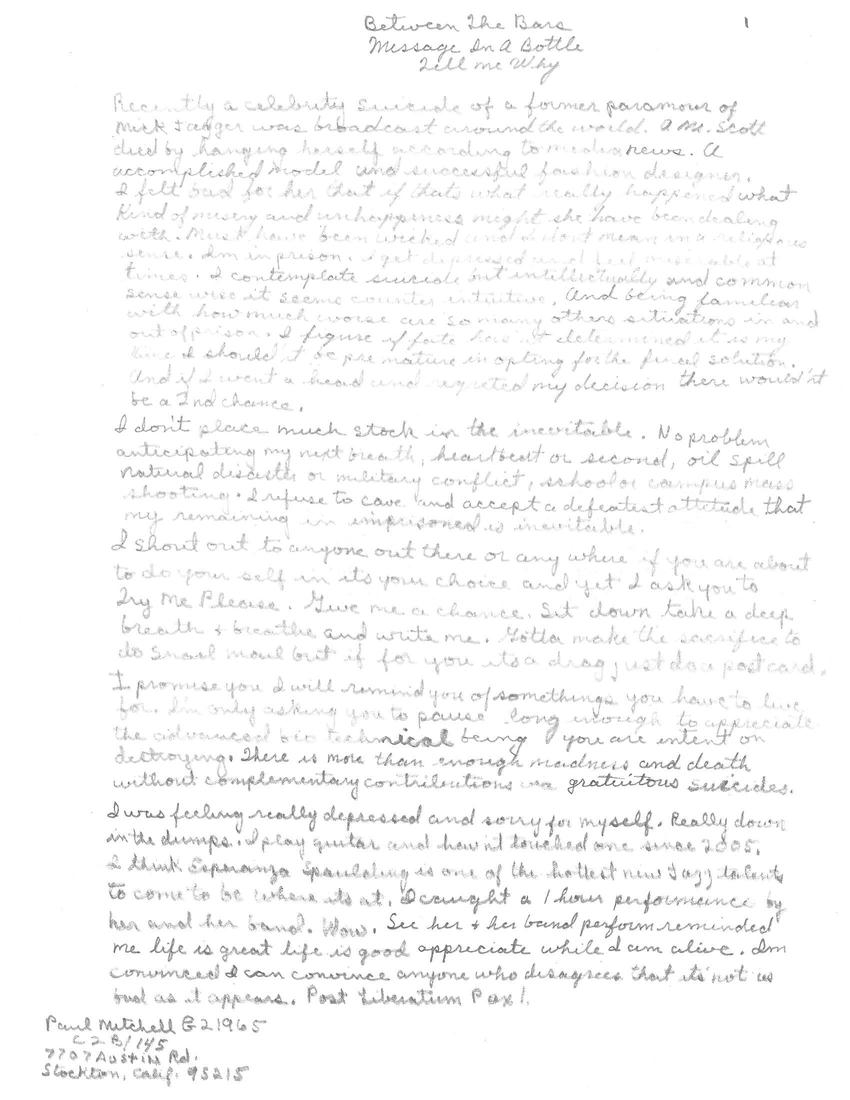 Between The Bars
1
Message In A Bottle
Tell me Why
Recently a celebrity suicide of a former paramour of
Mick Jagger was broadcast around the world. A Ms. Scott
died by hanging herself according to media news. A
accomplished model and successful fashion designer.
I felt bad for her that if thats what really happened what
kind of misery and unhappiness might she have been dealing
with. Must have been wicked and I dont mean in a religious
sense. Im in prison. I get depressed and feel miserable at
times. I contemplate suicide but intellectually and common
sense wise it seems counter intuitive. And being familiar
with how much worse are so many others situations in and
out of prison. I figure if fate has it determined it is my
time I should'nt be premature in opting for the final solution.
And if I went a head and regreted my decision there would'nt
be a 2nd chance.
I don't place much stock in the inevitable. No problem
anticipating my next breath, heartbeat or second, oil spill
natural disaster or military conflict, school or campus mass
shooting. I refuse to cave and accept a defeatest attitude that
my remaining in imprisoned is inevitable.
I shout out to anyone out there or any where if you are about
to do your self in its your choice and yet I ask you to
Try Me Please. Give me a chance. Sit down take a deep
breath & breathe and write me. Gotta make the sacrifice to
do snail mail but if for you its a drag just do a postcard.
I promise you I will remind you of somethings you have to live
for. I'm only asking you to pause long enough to appreciate
the advanced bio technical being you are intent on
destroying. There is more than enough madness and death
without complementary contributions via gratuitous suicides.
I was feeling really depressed and sorry for myself. Really down
in the dumps. I play guitar and hav'nt touched one since 2005.
I think Esperanza Spaulding is one of the hottest new Jazz talents
to come to be where its at. I caught a 1 hour performance by
her and her band. Wow. See her & her band perform reminded
me life is great life is good appreciate while I am alive. Im
convinced I can convince anyone who disagrees that it's not as
bad as it appears. Post Liberatum Pax!
Paul Mitchell G21965
C2B/145
7707 Austin Rd.
Stockton, Calif. 95215